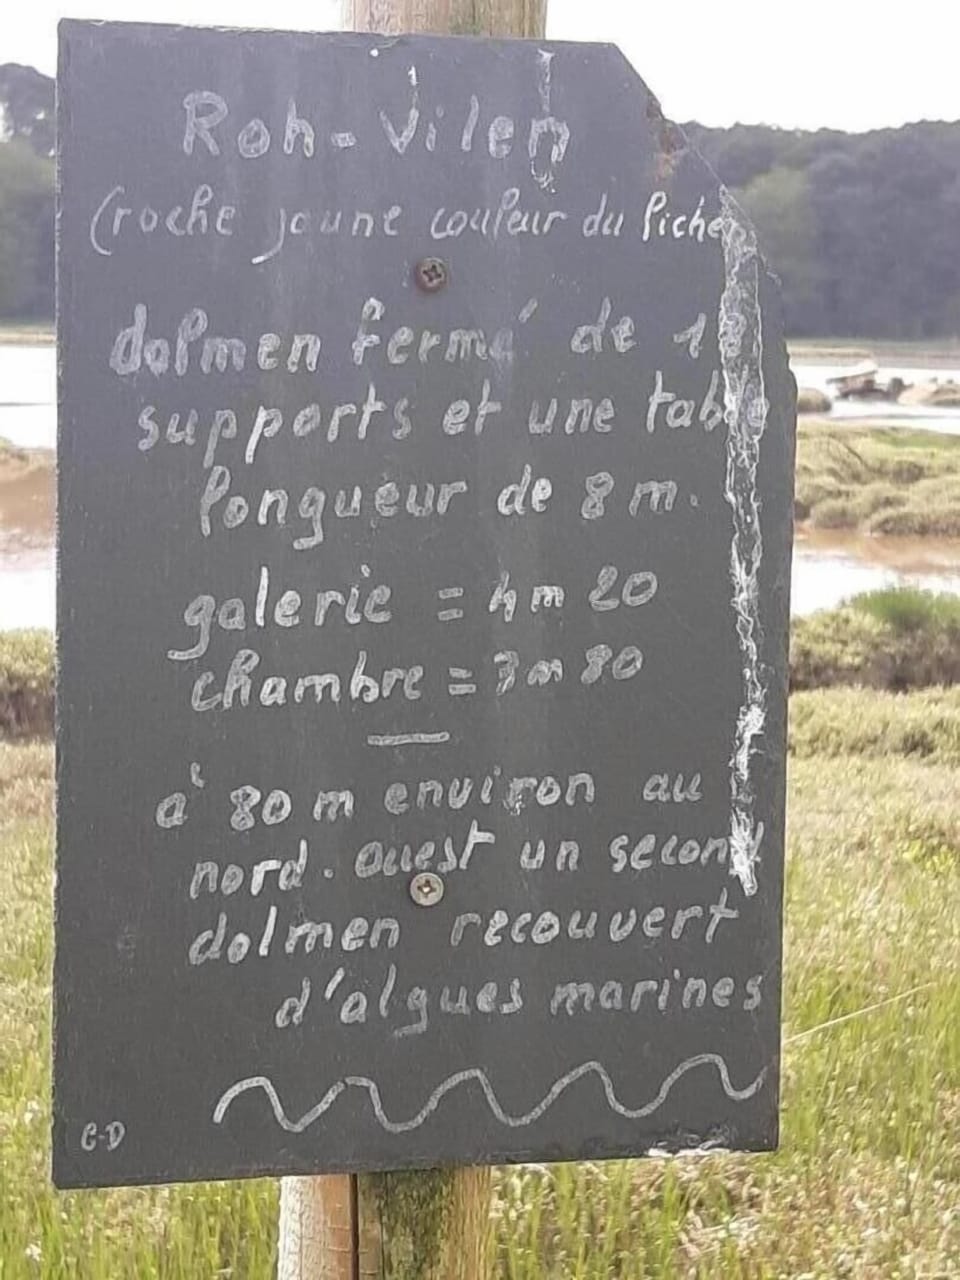 Roh-Vilen
(roche jaune couleur du liche
dolmen fermé de 18
supports et une table
longueur de 8 m.
galerie = 4 m 20
chambre = 3 m 80
—
à 80 m environ au
nord. ouest un second
dolmen recouvert
d'algues marines
C-D